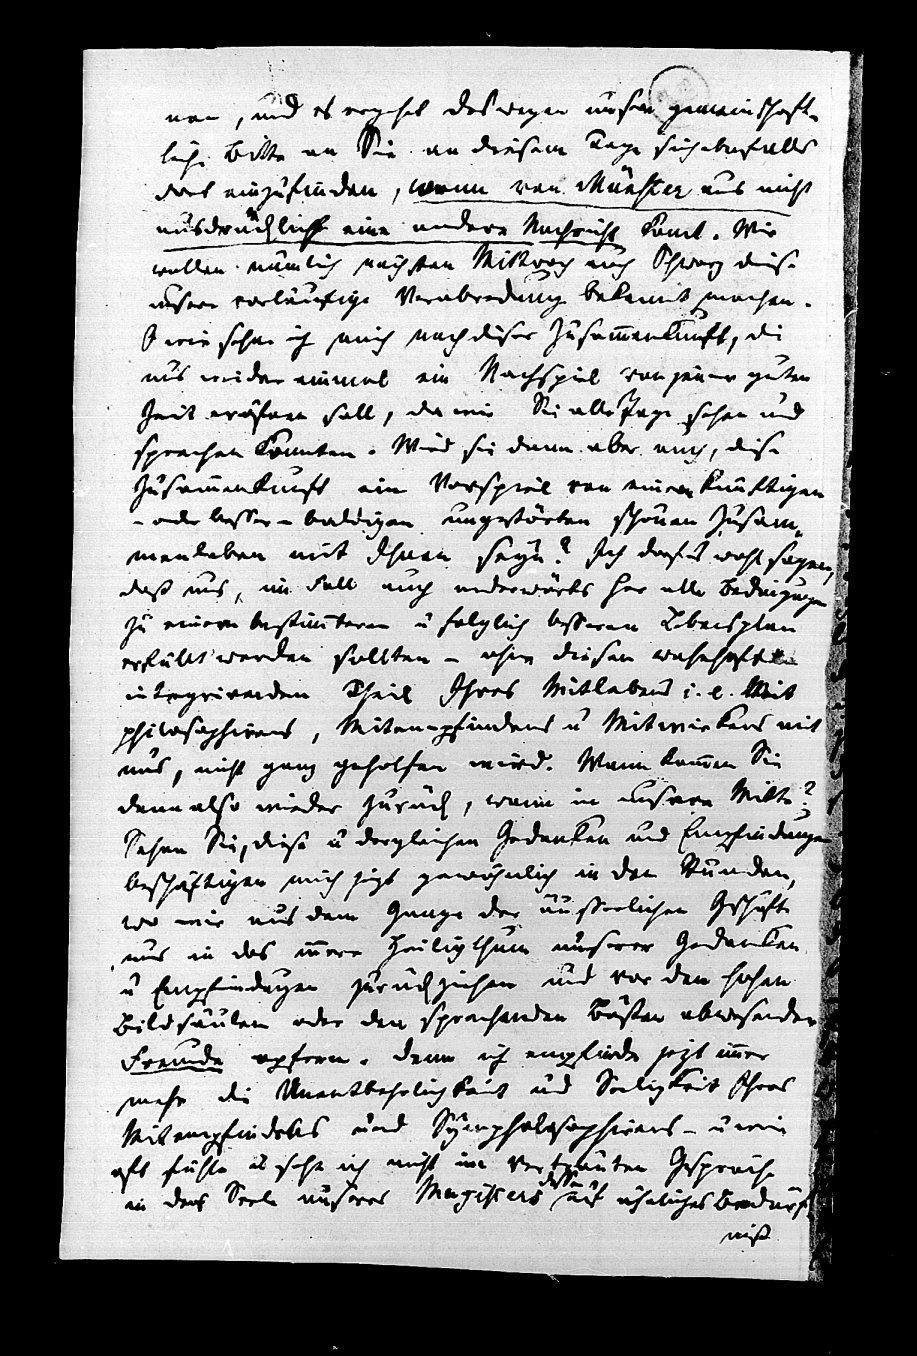 nen, und es ergehet deswegen unsere gemeinschaft-
liche Bitte an Sie an diesem Tage sich ebenfalls
dort einzufinden, wenn von Münster aus nicht
ausdrücklich eine andere Nachricht komt. Wir
wollen nämlich nächsten Mittwoch auch diese
unsere vorläufige Verabredung bekannt machen.
O wie sehne ich mich nach dieser Zusammenkunft, die
uns wieder einmal ein Nachspiel von jener guten
Zeit eröfnen soll, da wir Sie alle Tage sehen und
sprechen konnten. Wird sie dann aber auch, diese
Zusammenkunft ein Vorspiel von einem künftigen
- oder besser - baldigen ungestörten schönen Zusam-
menleben mit Ihnen seyn? Ich darf es wohl sagen,
daß uns, im Fall auch anderwärts her alle Bedingungen
zu einem bestimteren u folglich besseren Lebensplan
erfüllt werden sollten - ohne diesen wahrhaften
integrirenden Theil Ihres Mitlebens i. e. Mit
philosophirens, Mitempfindens u Mitwirkens mit
uns, nicht ganz geholfen wird. Wann kommen Sie
denn also wieder zurück, wann in unsere Mitte?
Sehen Sie, diese u dergleichen Gedanken und Empfindungen
beschäftigen mich jezt gewöhnlich in den Stunden,
wo wir aus dem Gange der äusserlichen Geschäfte
uns in das innere Heiligthum unserer Gedanken
u Empfindungen zurückziehen und vor den hohen
Bildsäulen oder den sprechenden Büsten abwesender
Freunde opfern. Denn ich empfinde jezt immer
mehr die Unentbehrlichkeit und Seeligkeit Ihres
Mitempfindens und Symphilosophirens - u wie
oft fühle u sehe ich nicht im vertrauten Gespräche
in der Seele unseres Magisters dessen auf ähnliches Bedürf
niß